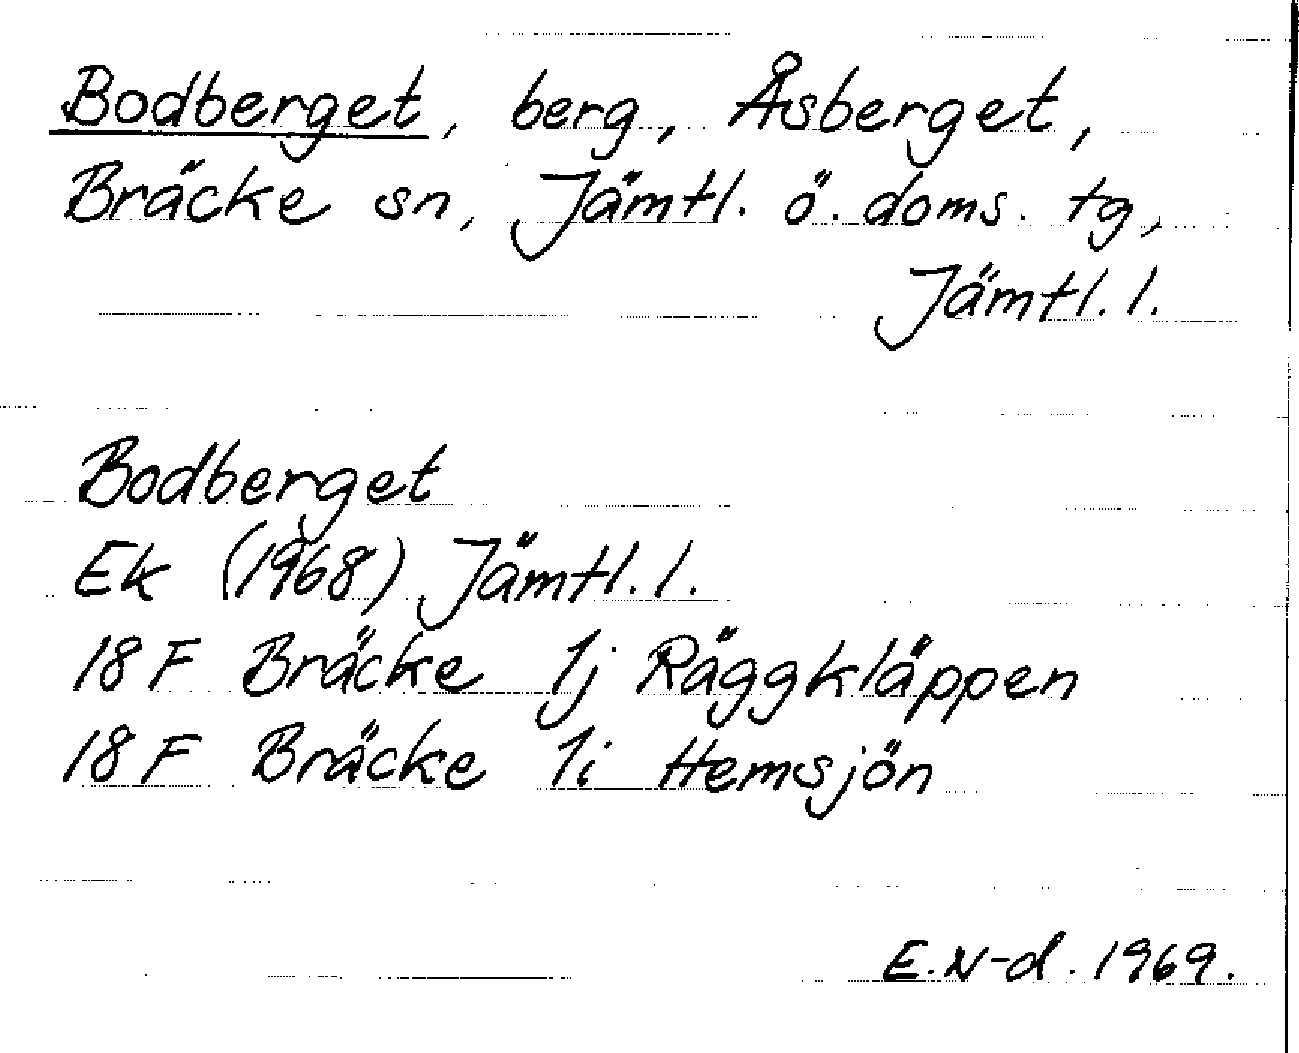 Bodberget, berg, Åsberget,
Bräcke sn, Jämtl. ö. doms. tg,
Jämtl. l.
Bodberget
Ek (1968) Jämtl. l.
18 F Bräcke 1j Räggkläppen
18 F Bräcke 1i Hemsjön
E. N-d. 1969.